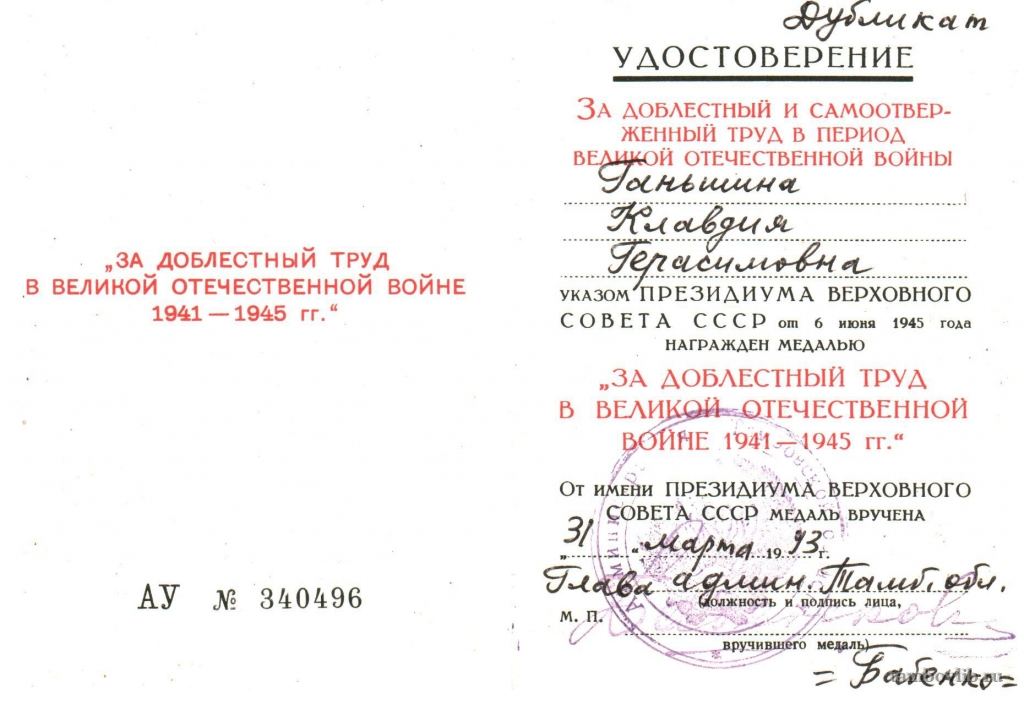 „ЗА ДОБЛЕСТНЫЙ ТРУД
В ВЕЛИКОЙ ОТЕЧЕСТВЕННОЙ ВОЙНЕ
1941 — 1945 гг.“
АУ № 340496
Дубликат
УДОСТОВЕРЕНИЕ
ЗА ДОБЛЕСТНЫЙ И САМООТВЕР-
ЖЕННЫЙ ТРУД В ПЕРИОД
ВЕЛИКОЙ ОТЕЧЕСТВЕННОЙ ВОЙНЫ
Ганьшина
Клавдия
Герасимовна
УКАЗОМ ПРЕЗИДИУМА ВЕРХОВНОГО
СОВЕТА СССР от 6 июня 1945 года
НАГРАЖДЕН МЕДАЛЬЮ
„ЗА ДОБЛЕСТНЫЙ ТРУД
В ВЕЛИКОЙ ОТЕЧЕСТВЕННОЙ
ВОЙНЕ 1941 — 1945 гг.“
ОТ ИМЕНИ ПРЕЗИДИУМА ВЕРХОВНОГО
СОВЕТА СССР МЕДАЛЬ ВРУЧЕНА
„31“ марта 1993 г.
Глава админ. Тамб. обл.
(должность и подпись лица,
М. П.
вручившего медаль)
= Бабенко =
tambovlib.ru